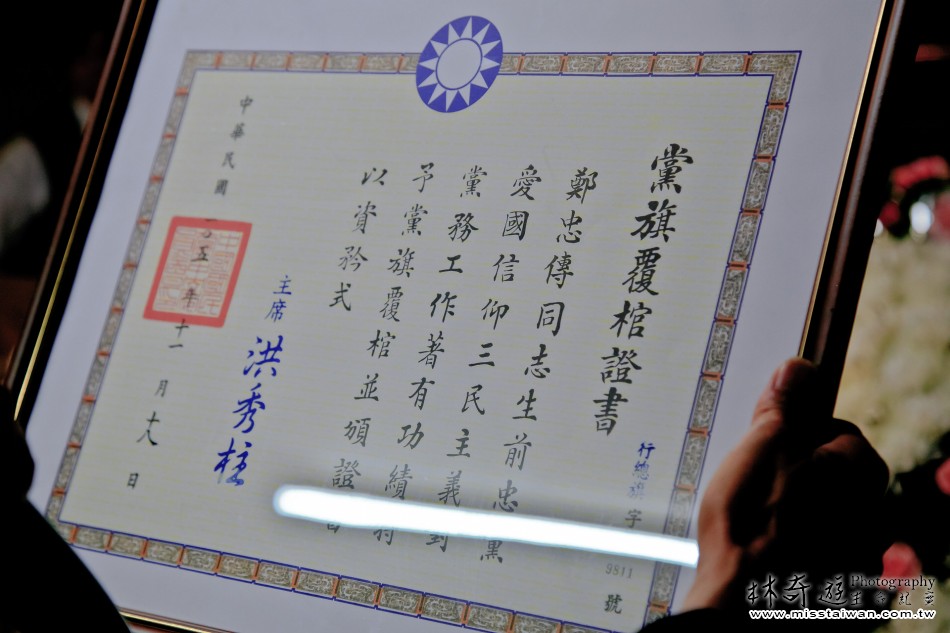 黨旗覆棺證書
行總旗字
9811
號
鄭忠傳同志生前忠黨
愛國信仰三民主義對
黨務工作著有功績特
予黨旗覆棺並頒證書
以資矜式
主席 洪秀柱
中華民國一〇五年十一月十八日
林奇遊 Photography
www.misstaiwan.com.tw